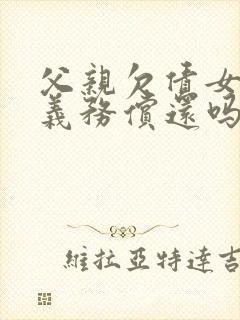 父親欠債女
義務償還嗎
維拉亞特達吉